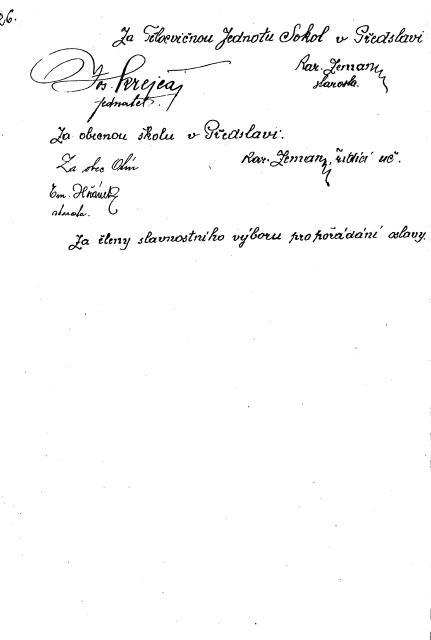 26.
Za Tělocvičnou Jednotu Sokol v Předslavi
Jos. Krejča
jednatel.
Kar. Zeman
starosta.
Za obecnou školu v Předslavi.
Za obec
Kar. Zeman, řídící uč.
Em.
starosta.
Za členy slavnostního výboru pro pořádání oslavy.